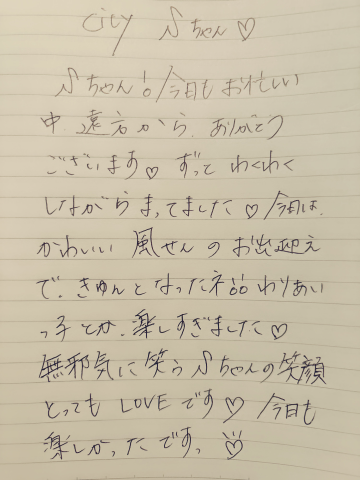 city Sちゃん♡
Sちゃん!!今日もお忙しい
中、遠方から、ありがとう
ございます♡ ずっと わくわく
しながらまってました♡今日は、
かわいい 風せんの お出迎え
で、きゅんとなった
っ子とか、楽しすぎました♡
無邪気に笑うSちゃんの笑顔
とっても LOVE です♡ 今日も
楽しかったですっ